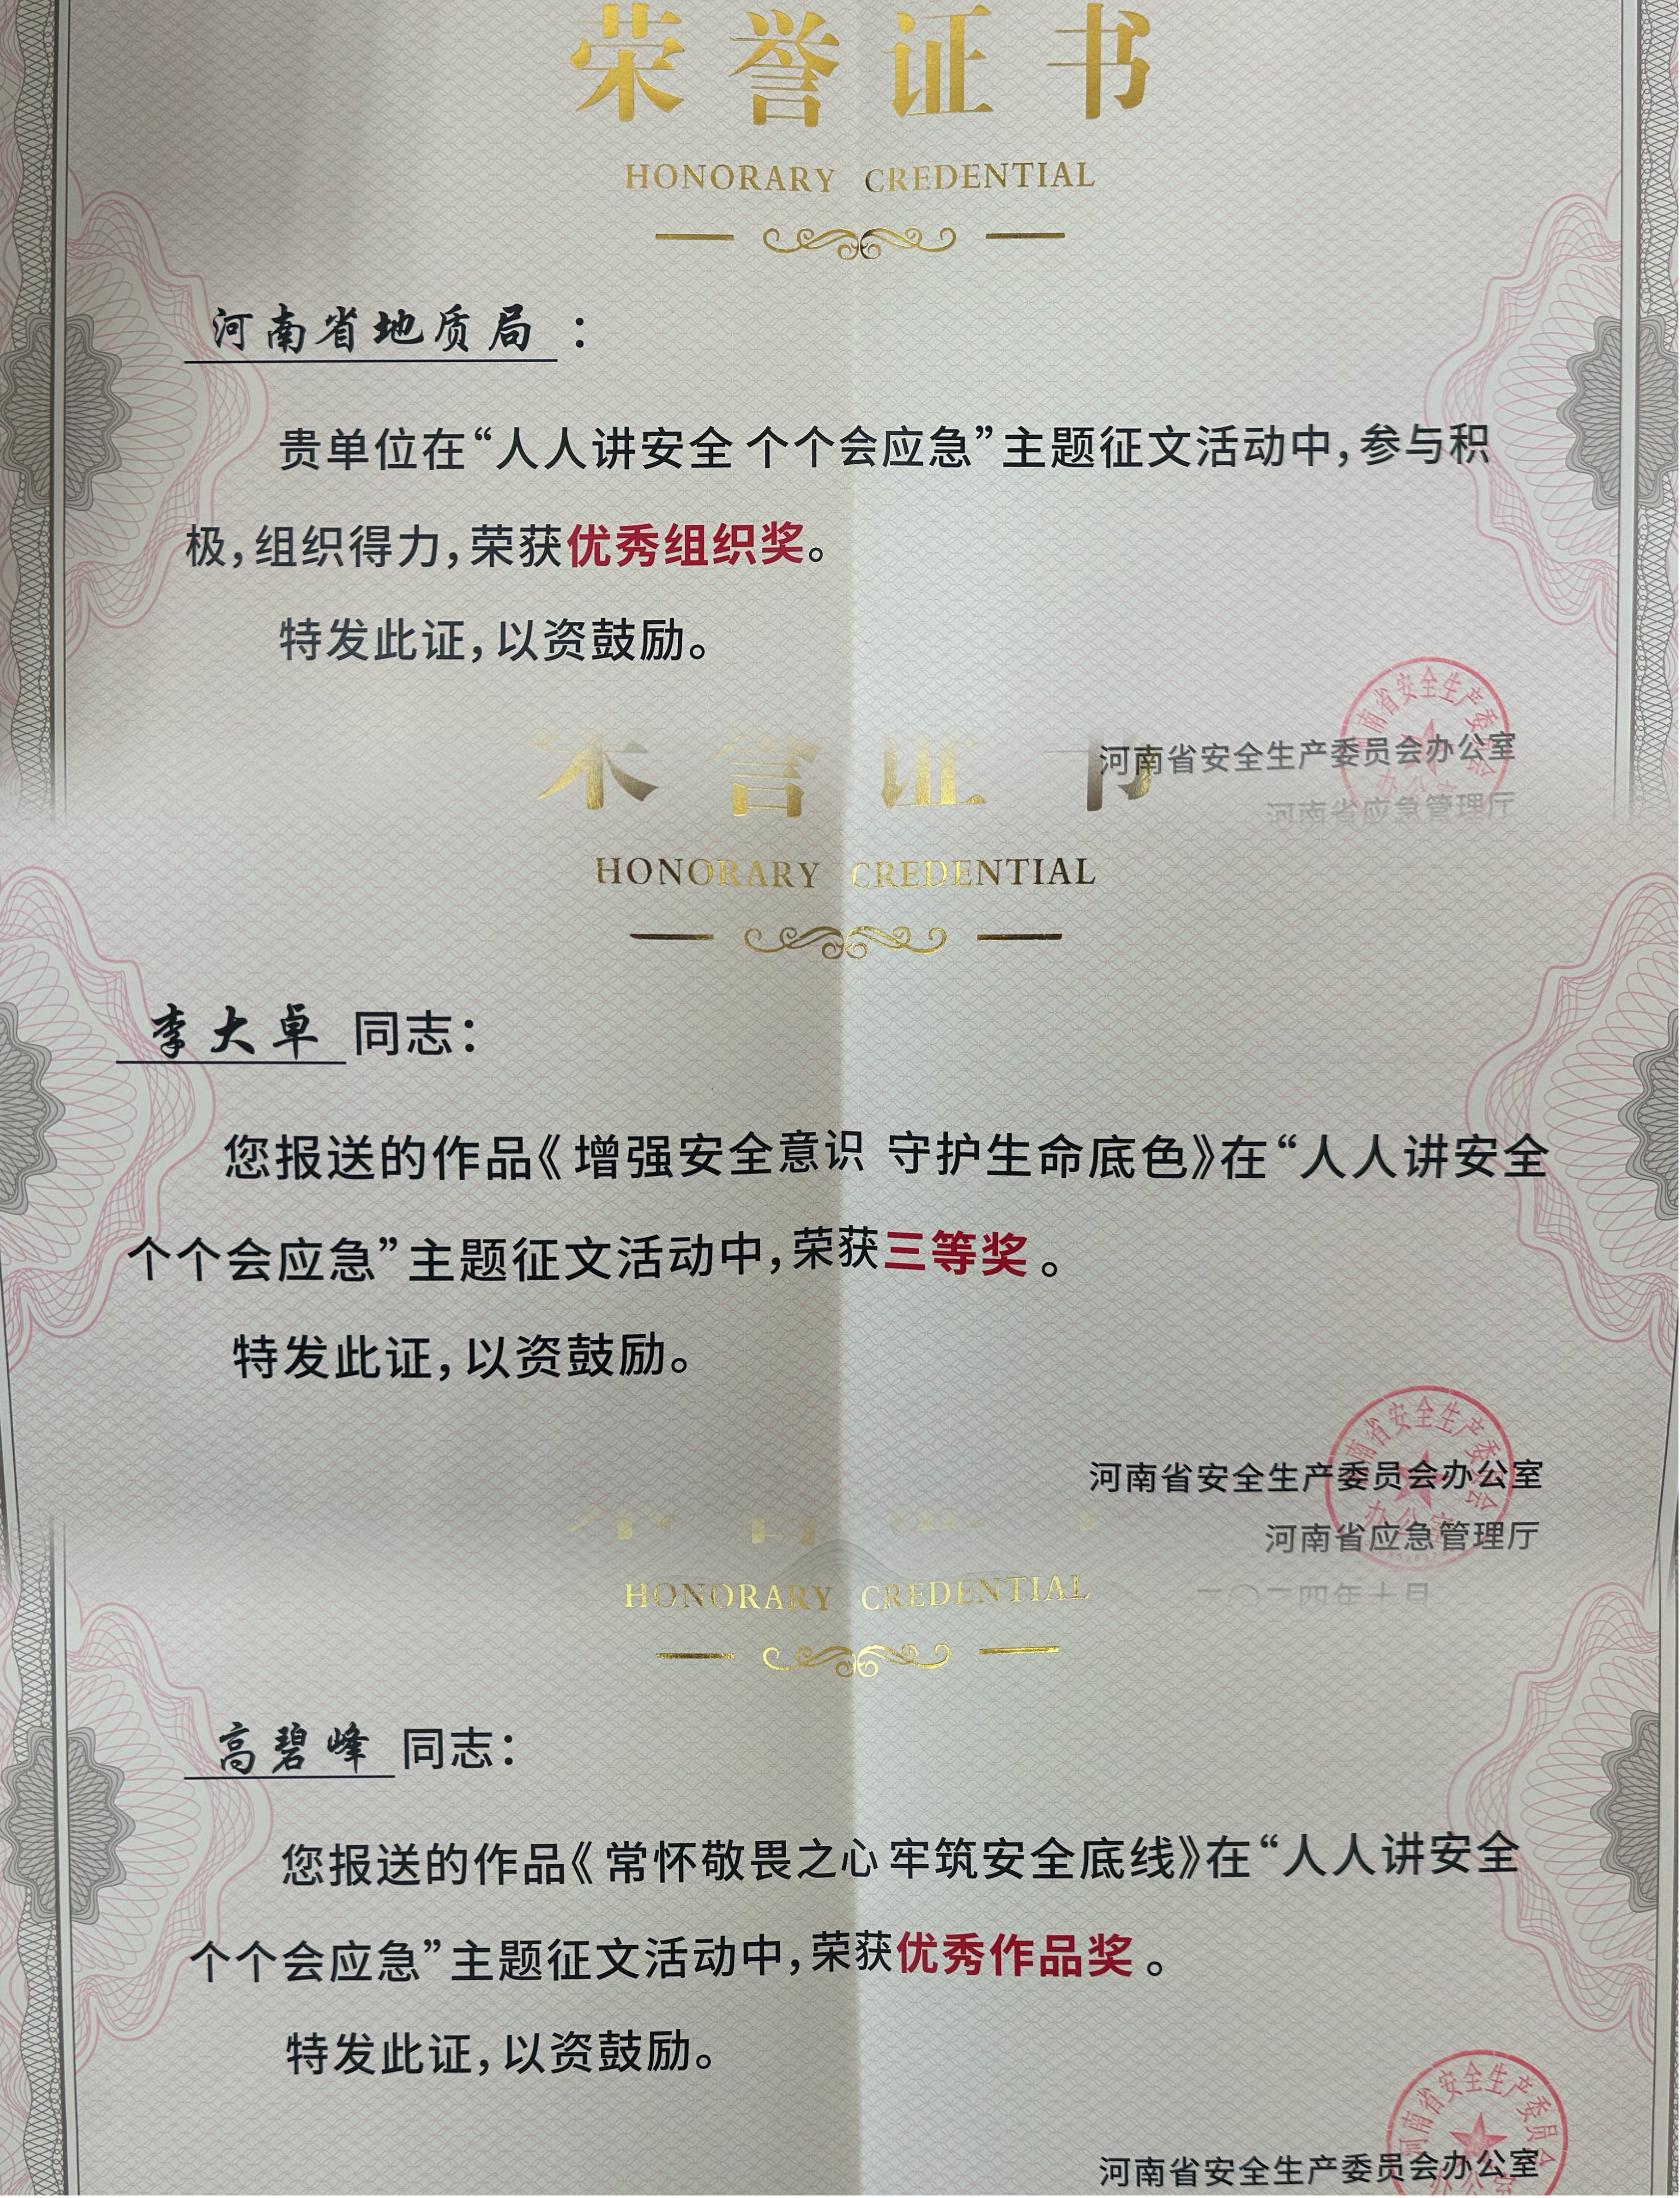 荣誉证书
HONORARY CREDENTIAL
河南省地质局：
贵单位在“人人讲安全 个个会应急”主题征文活动中，参与积
极，组织得力，荣获优秀组织奖。
特发此证，以资鼓励。
河南省安全生产委员会办公室
河南省应急管理厅
荣誉证书
HONORARY CREDENTIAL
李大卓 同志：
您报送的作品《增强安全意识 守护生命底色》在“人人讲安全
个个会应急”主题征文活动中，荣获三等奖。
特发此证，以资鼓励。
河南省安全生产委员会办公室
河南省应急管理厅
二〇二四年十月
HONORARY CREDENTIAL
高碧峰 同志：
您报送的作品《常怀敬畏之心 牢筑安全底线》在“人人讲安全
个个会应急”主题征文活动中，荣获优秀作品奖。
特发此证，以资鼓励。
河南省安全生产委员会办公室